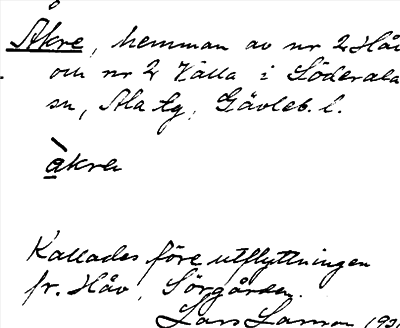 Åkre, hemman av nr 2 Håv
och nr 2 Källa i Söderala
sn, Ala tg, Gävleb. l.
àkra
Kallades före utflyttningen
fr. Håv, Sörgården.
Lars Larsson 193